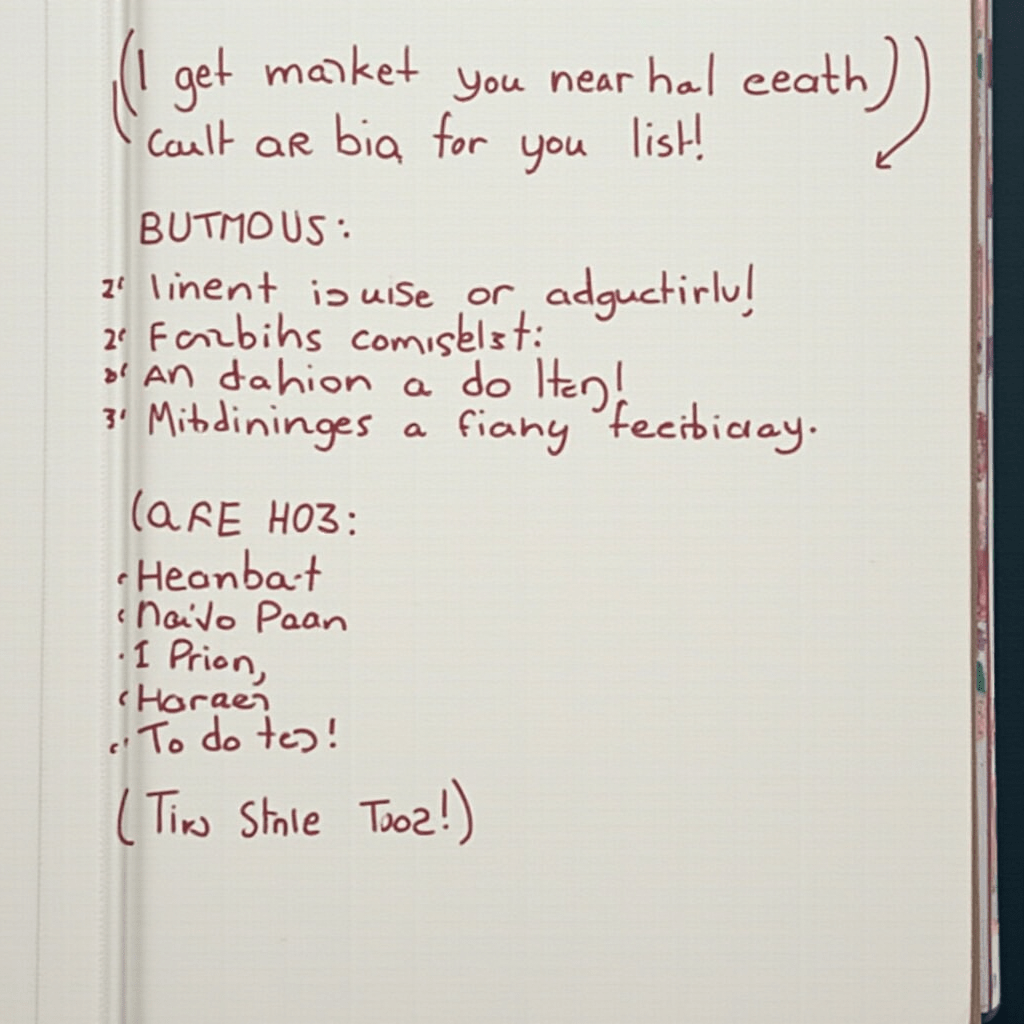 (I get market you near hal eeath)
Cault aR bia for you list!
BUTMOUS:
linent is uise or adguctirlv!
Farbihs comiselst:
AN dahion a do
Mitdininges a fiahy fecibiday.
(aRE HO3:
Heanbat
Naivo Paan
I Prion,
Haraei
To do
(Tiw Stnle Tooz!)